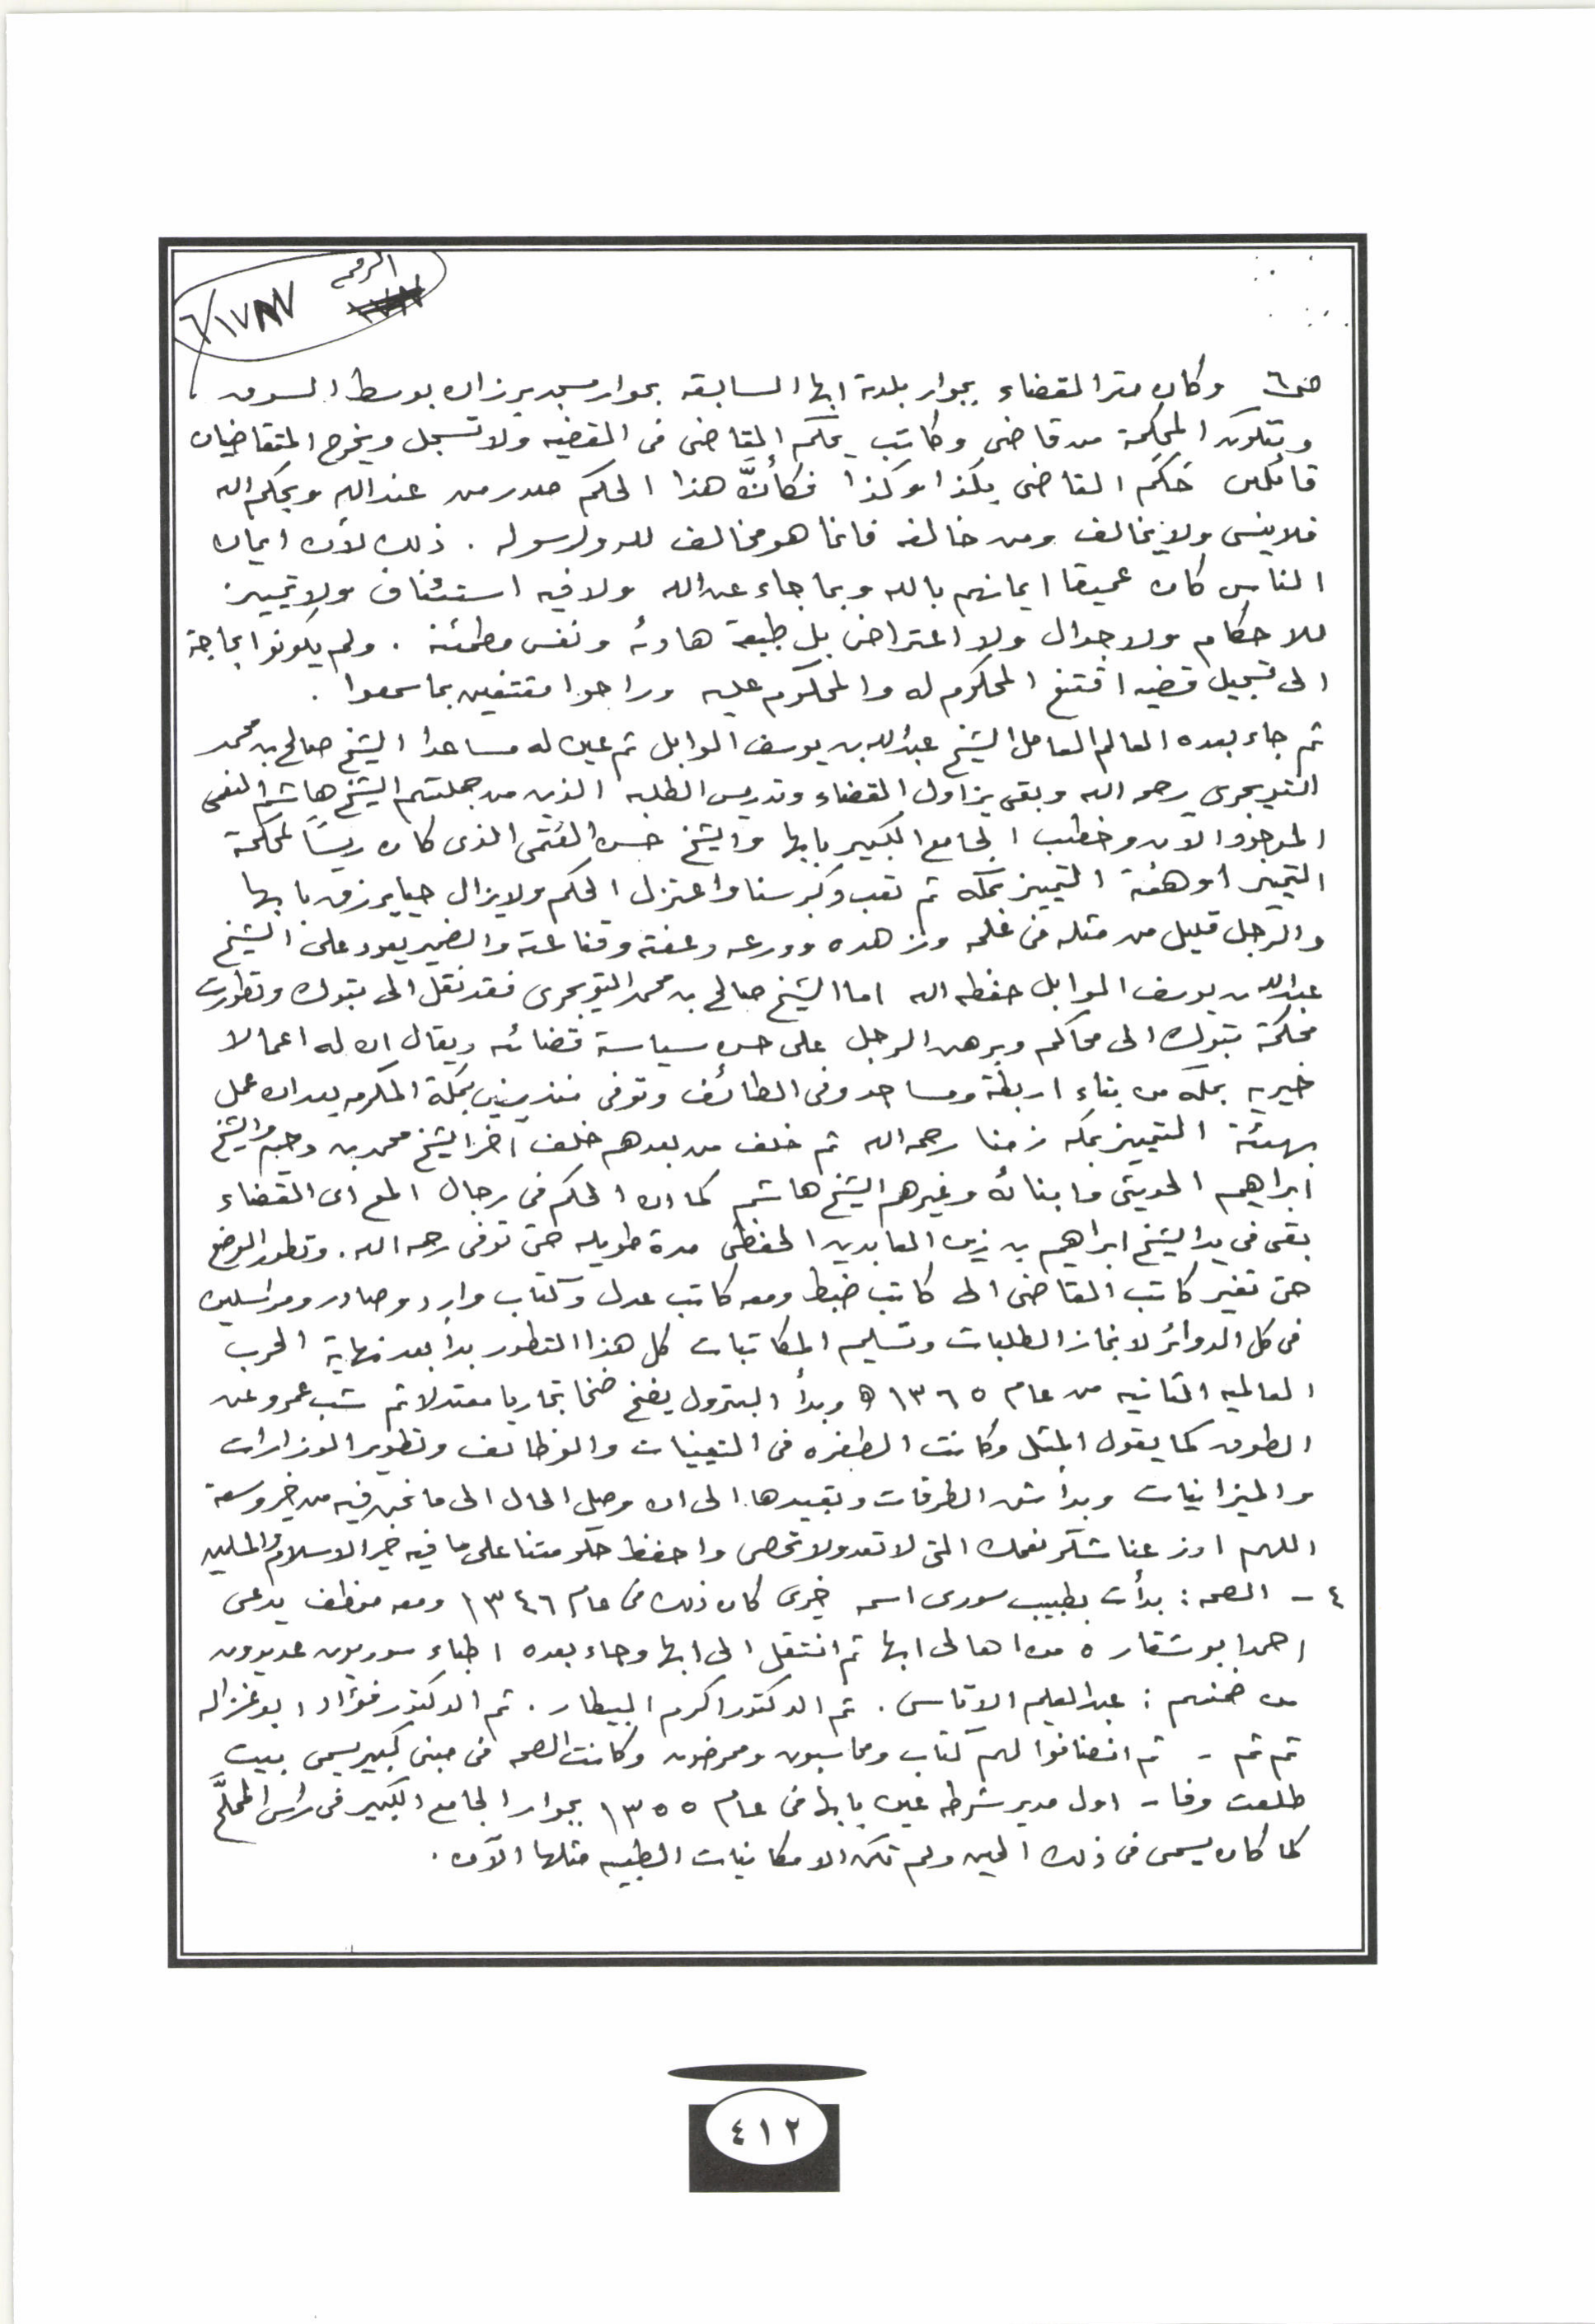 الرقم
٦/١٧٨٧
ص٦ وكان مقر القضاء بجوار بلدية ابها السابقه بجوار مسجد برزان بوسط السوق
وتتكون المحكمة من قاضى وكاتب يحكم القاضى فى القضيه ولا تسجل ويخرج المتقاضيان
قائلين حَكَم القاضى بكذا وكذا فكأنَّ هذا الحكم صدر من عند الله وبحكم الله
فلا ينسى ولا يخالف ومن خالفه فانما هو مخالف لله ولرسوله . ذلك لأن ايمان
الناس كان عميقا ايمانهم بالله وبما جاء عن الله ولا فيه استئناف ولا تمييز
للاحكام ولا جدال ولا اعتراض بل طبيعة هادئه ونفس مطمئنة . ولم يكونوا بحاجة
الى تسجيل قضيه اقتنع المحكوم له والمحكوم عليه وراحوا مقتنعين بما سمعوا .
ثم جاء بعده العالم العامل الشيخ عبدالله بن يوسف الوابل ثم عين له مساعدا الشيخ صالح بن محمد
التويجرى رحمه الله وبقى يزاول القضاء وتدريس الطلبه الذين من جملتهم الشيخ هاشم النعمى
الموجود الان وخطيب الجامع الكبير بابها والشيخ حسن العُتمى الذى كان رئيسًا لمحكمة
التمييز او هيئة التمييز بمكه ثم تعب وكبر سنا واعتزل الحكم ولا يزال حيا يرزق بابها
والرجل قليل من مثله فى علمه وزهده وورعه وعفته وقناعته والضمير يعود على الشيخ
عبدالله بن يوسف الوابل حفظه الله اما الشيخ صالح بن محمد التويجرى فقد نقل الى تبوك وتطورت
محكمة تبوك الى محاكم وبرهن الرجل على حسن سياسة قضائه ويقال ان له اعمالا
خيريه بمكه من بناء اربطة ومساجد وفى الطائف وتوفى منذ سنين بمكة المكرمه بعد ان عمل
بهيئة التمييز بمكه زمنا رحمه الله ثم خلف من بعدهم خلف آخر الشيخ محمد بن وحيم والشيخ
ابراهيم الحديثى وابنائه وغيرهم الشيخ هاشم كما ان الحكم فى رجال المع اى القضاء
بقى فى يد الشيخ ابراهيم بن زين العابدين الحفظى مدة طويله حتى توفى رحمه الله . وتطور الوضع
حتى تغير كاتب القاضى الى كاتب ضبط ومعه كاتب عدل وكتاب وارد وصادر ومراسلين
فى كل الدوائر لانجاز الطلبات وتسليم المكاتبات كل هذا التطور بدأ بعد نهاية الحرب
العالميه الثانيه من عام ١٣٦٥ ه وبدأ البترول يضخ ضخا تجاريا معتدلا ثم شب عمرو عن
الطوق كما يقول المثل وكانت الطفره فى التعيينات والوظائف وتطوير الوزارات
والميزانيات وبدأ شق الطرقات وتعبيدها الى ان وصل الحال الى ما نحن فيه من خير وسعة
اللهم اوزعنا شكر نعمك التى لا تعد ولا تحصى واحفظ حكومتنا على ما فيه خير الاسلام والمسلمين
٤ - الصحه : بدأت بطبيب سورى اسمه خيرى كان ذلك فى عام ١٣٤٦ ومعه موظف يدعى
احمد ابو شقاره من اهالى ابها ثم انتقل الى ابها وجاء بعده اطباء سوريون عديدون
من ضمنهم : عبدالعليم الاتاسى . ثم الدكتور اكرم البيطار . ثم الدكتور فؤاد ابو غزاله
ثم ثم - ثم انضافوا لهم كتاب ومحاسبون وممرضون وكانت الصحه فى مبنى كبير يسمى بيت
طلعت وفا - اول مدير شرطه عين بابها فى عام ١٣٥٥ بجوار الجامع الكبير فى رأس المحلَّم
كما كان يسمى فى ذلك الحين ولم تكن الامكانيات الطبيه مثلها الآن .
٤١٢